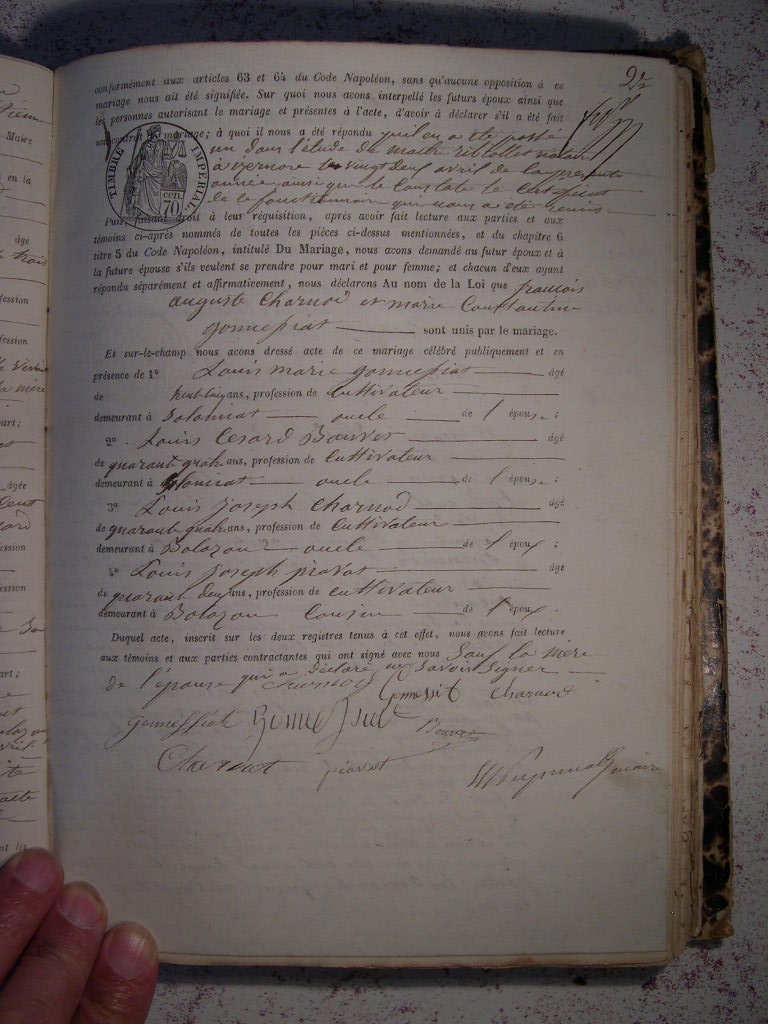 2
conformément aux articles 63 et 64 du Code Napoléon, sans qu'aucune opposition à ce
mariage nous ait été signifiée. Sur quoi nous avons interpellé les futurs époux ainsi que
les personnes autorisant le mariage et présentes à l'acte, d'avoir à déclarer s'il a été fait
un contrat de mariage; à quoi il nous a été répondu qu'il en a été passé
un dans l'étude de maitre notaire
à le vingt deux avril de la presente
année ainsi que le constate le certificat
de le fonctionnaire qui nous a été remis
TIMBRE IMPERIAL
70 cen.
Puis, faisant droit à leur réquisition, après avoir fait lecture aux parties et aux
témoins ci-après nommés de toutes les pièces ci-dessus mentionnées, et du chapitre 6
titre 5 du Code Napoléon, intitulé Du Mariage, nous avons demandé au futur époux et à
la future épouse s'ils veulent se prendre pour mari et pour femme; et chacun d'eux ayant
répondu séparément et affirmativement, nous déclarons Au nom de la Loi que francois
auguste Charnod et marie Constantine
gonnessiat sont unis par le mariage.
Et sur-le-champ nous avons dressé acte de ce mariage célébré publiquement et en
présence de 1° Louis marie gonnessiat âgé
de ans, profession de Cultivateur
demeurant à Solomiat oncle de l'épouse;
2° Louis Cesard Bouvet âgé
de quarante quatre ans, profession de Cultivateur
demeurant à Solomiat oncle de l'épouse;
3° Louis joseph Charnod âgé
de quarante quatre ans, profession de Cultivateur
demeurant à Bolozon oncle de l'époux;
4° Louis joseph piavot âgé
de quarante deux ans, profession de cultivateur
demeurant à Bolozon Cousin de l'époux.
Duquel acte, inscrit sur les deux registres tenus à cet effet, nous avons fait lecture
aux témoins et aux parties contractantes qui ont signé avec nous Sauf la mère
de l'épouse qui a déclaré ne savoir signer
charnod Gonnessiat Charnod
gonnessiat Bouvet
Charnod piavot maire